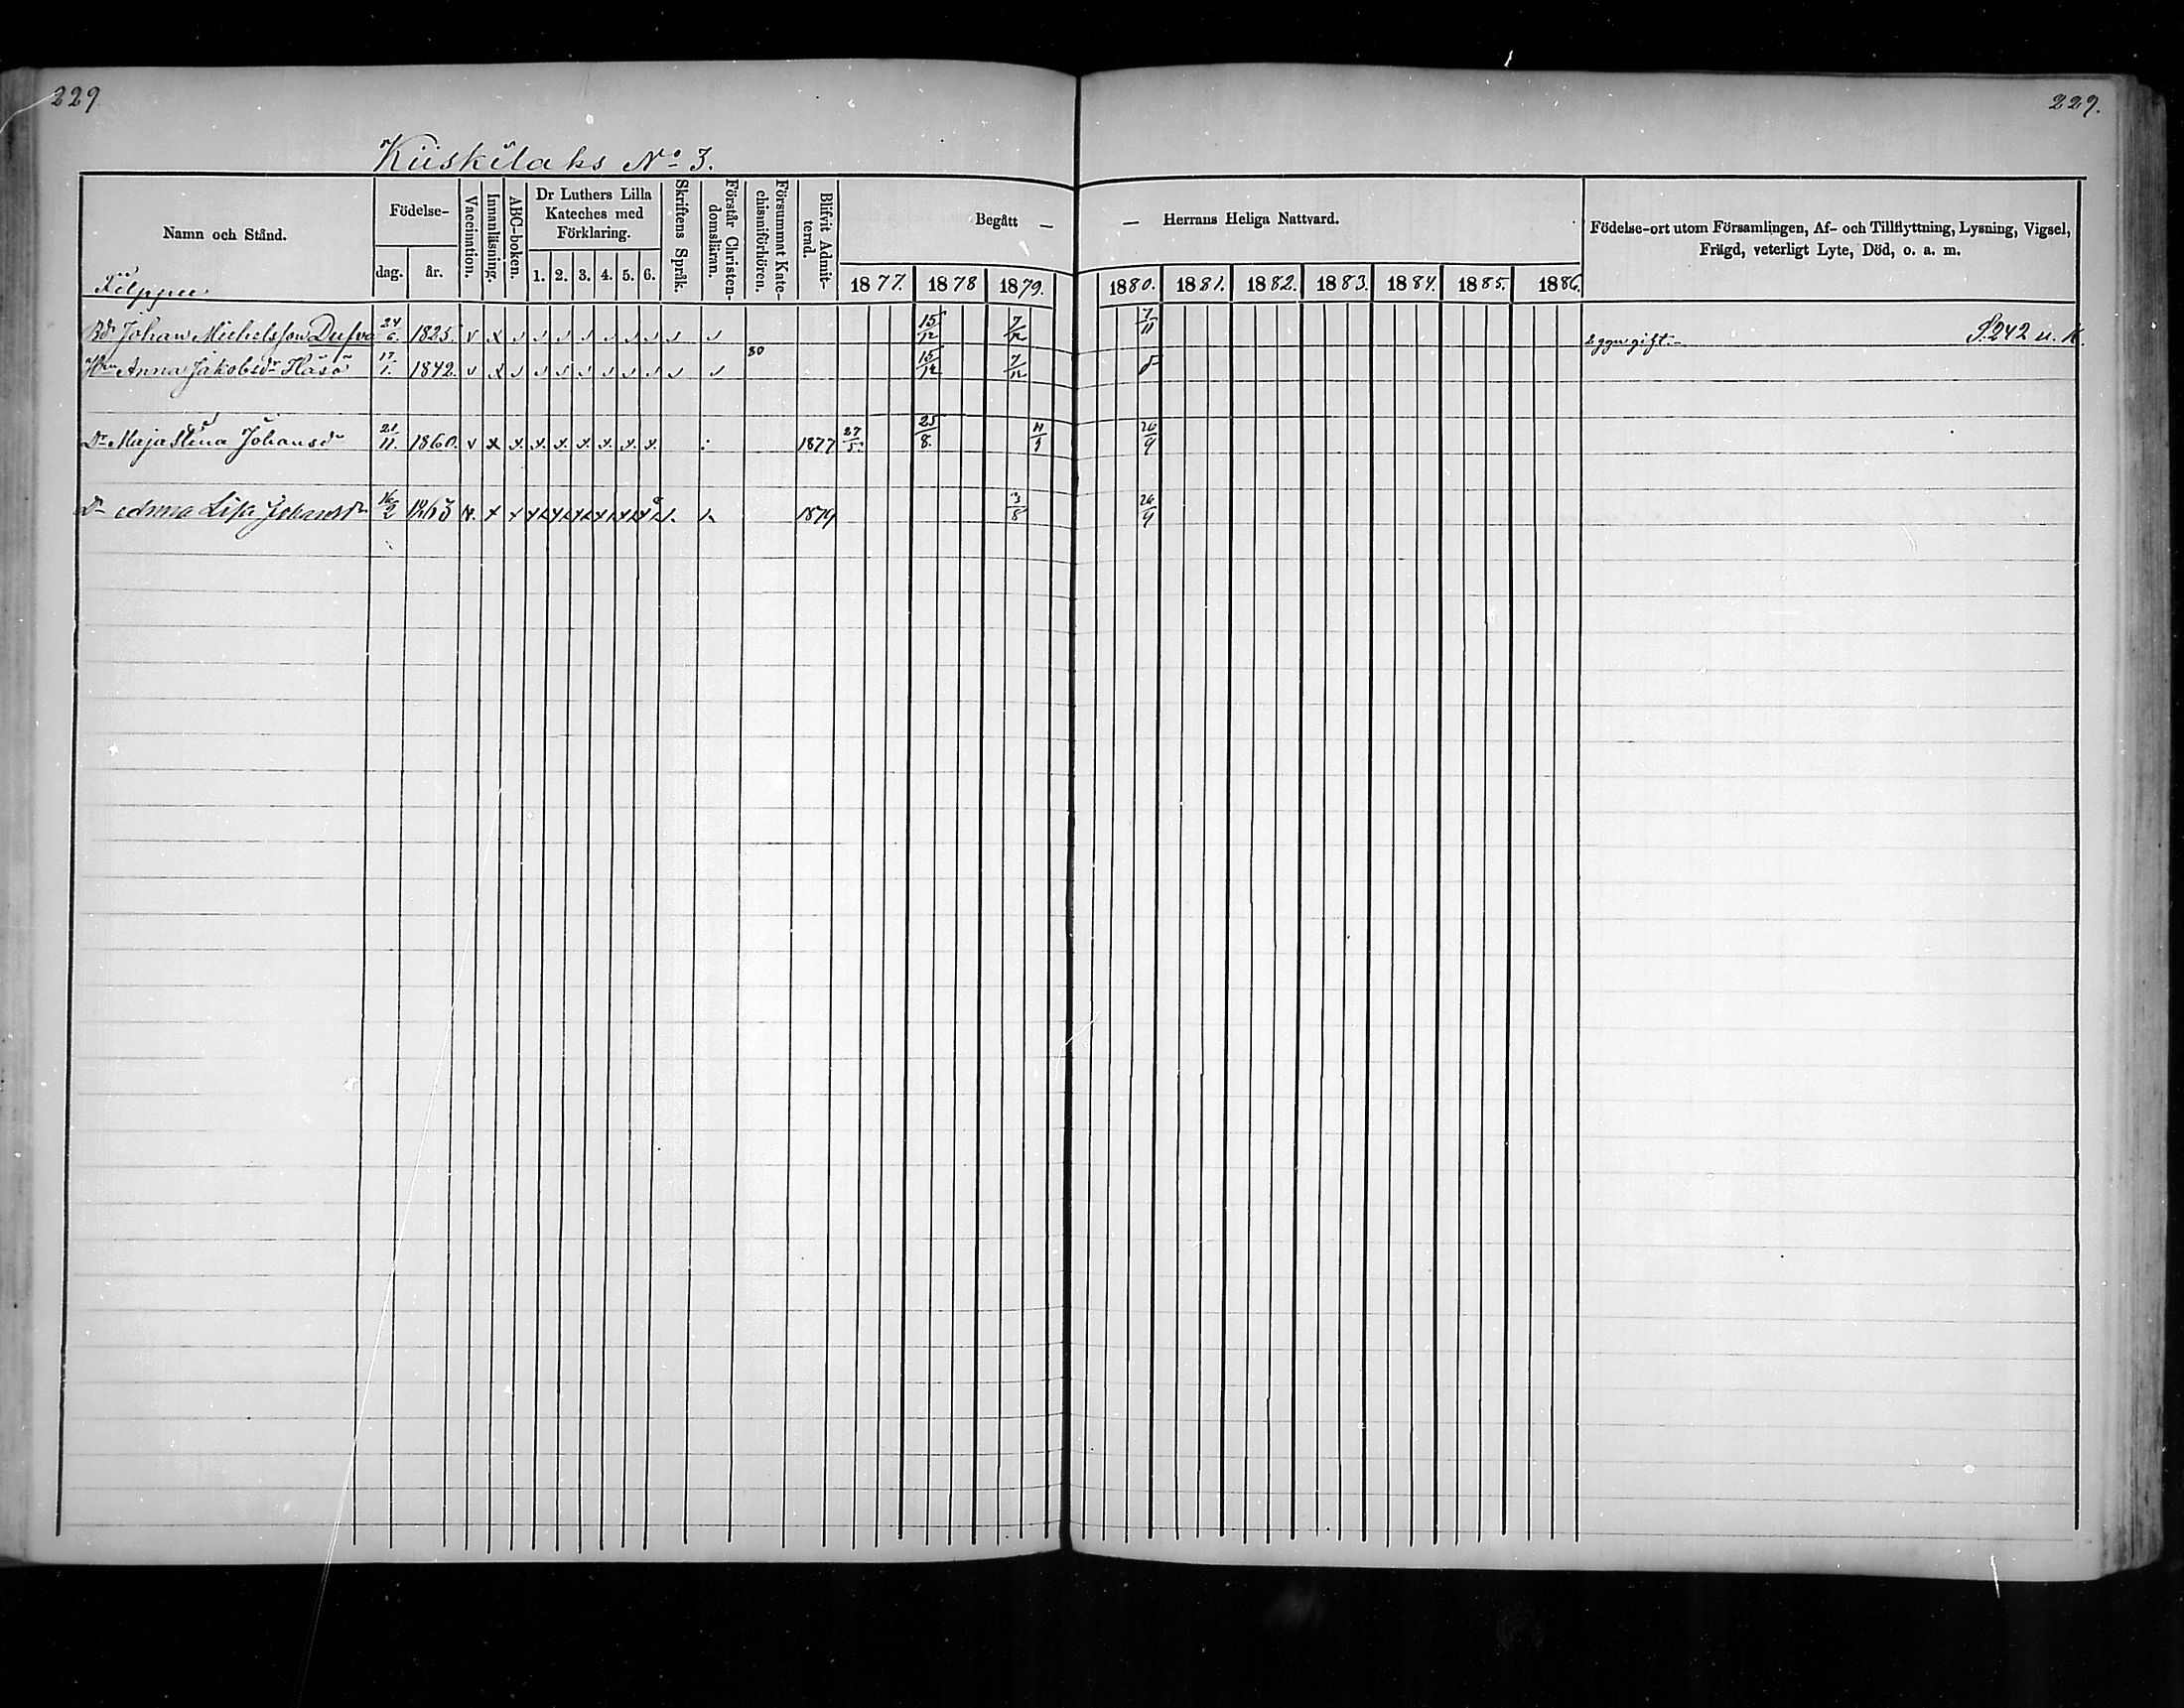 229.
229.
Kiiskilaks No 3.
Namn och Stånd.
Födelse-
dag.
år.
Vaccination.
Innanläsning.
ABC-boken.
Dr Luthers Lilla
Kateches med
Förklaring.
1. 2. 3. 4. 5. 6.
Skriftens Språk.
Förstår Christen-
domsläran.
Försummat Kate-
chismiförhören.
Blifvit Admit-
terad.
Begått —
— Herrans Heliga Nattvard.
1877. 1878 1879. 1880. 1881. 1882. 1883. 1884. 1885. 1886.
Födelse-ort utom Församlingen, Af- och Tillflyttning, Lysning, Vigsel,
Frägd, veterligt Lyte, Död, o. a. m.
Filppu
Bd. Johan Michelsson Dufva 24/6. 1825. v x 15/12 7/12 7/11 2 ggr gift.- S. 242 u. K.
Hru Anna Jakobsdr Häsä 17/1. 1842. v x 80 15/12 7/12
Dr Maja Stina Johansdr 21/11. 1860. v x x. x. x. x. x. x. x. 1877 27/5. 25/8. 26/9
Dr Anna Lisa Johansdr 16/2 1863 v. x x 1879 3/8 26/9